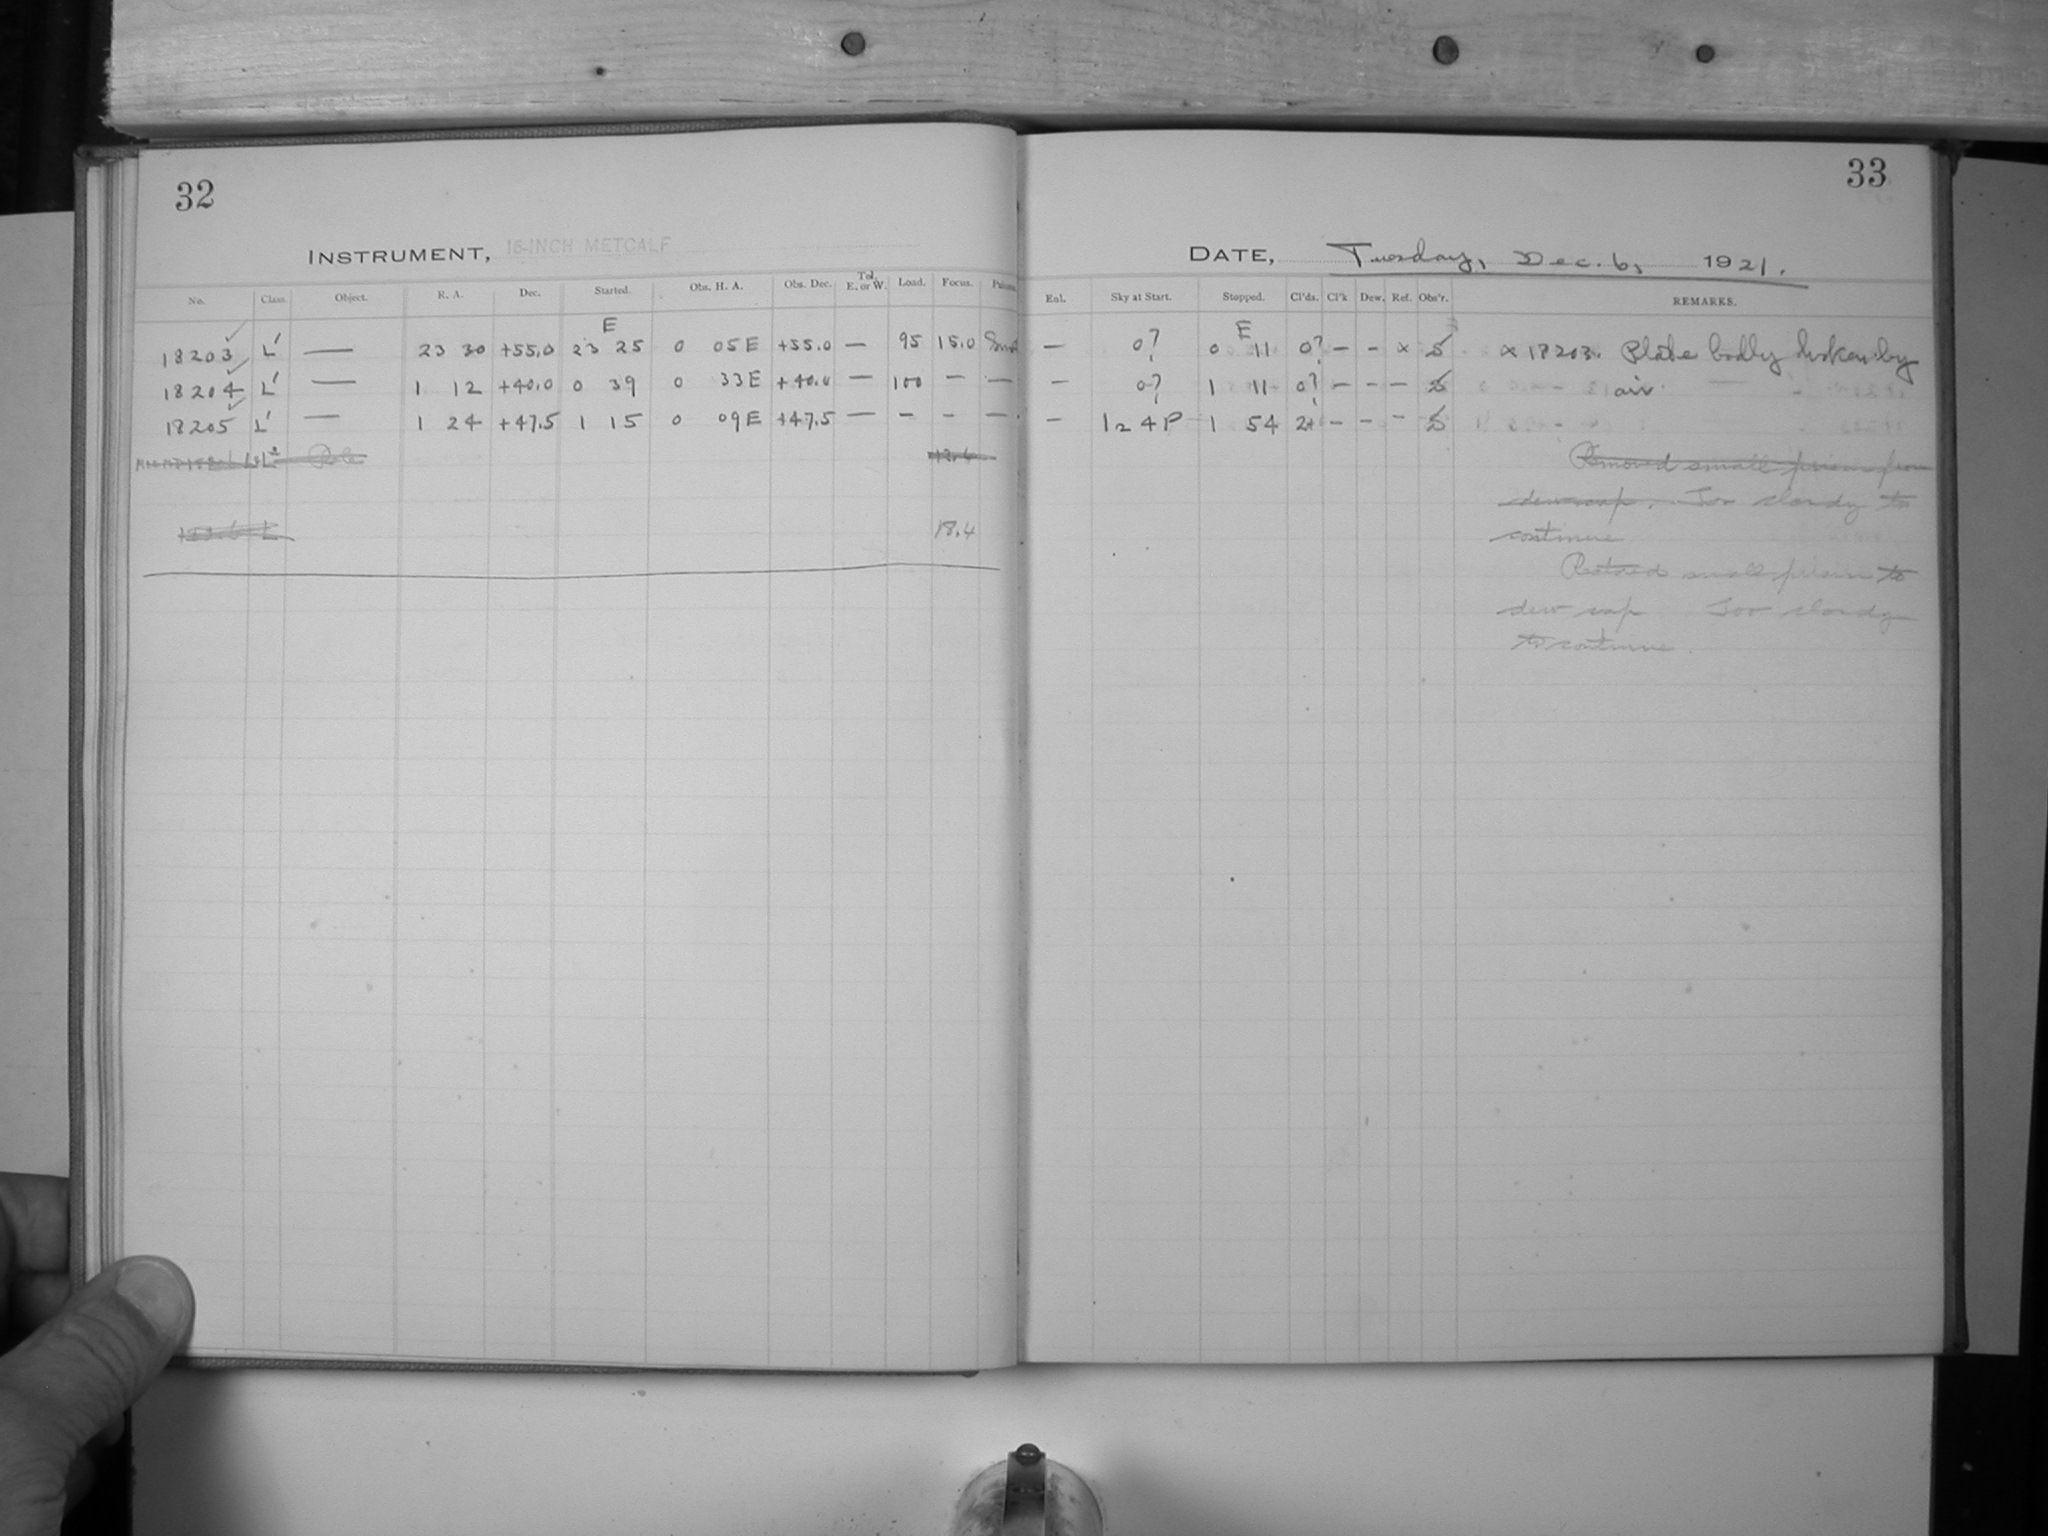 32
INSTRUMENT, 16-INCH METCALF
No. Class. Object. R. A. Dec. Started. Obs. H. A. Obs. Dec. Tel. E. or W. Load. Focus.
E
18203 L' — 23 30 +55.0 23 25 0 05 E +55.0 — 95 15.0
18204 L' — 1 12 +40.0 0 39 0 33 E +40.0 — 100 — —
18205 L' — 1 24 +47.5 1 15 0 09 E +47.5 — — — —
Pole
18.4
33
DATE, Tuesday, Dec. 6, 1921.
Sky at Start. Stopped. Cl'ds. Cl'k Dew. Ref. Obs'r. REMARKS.
E
— 0? 0 11 0? — — x S x 18203. Plate badly broken by
— 0? 1 11 0? — — — S air.
— 1 2 4 P 1 54 2+ — — — S
Removed small prism from
dew cap. Too cloudy to
continue
Restored small prism to
dew cap Too cloudy
to continue.